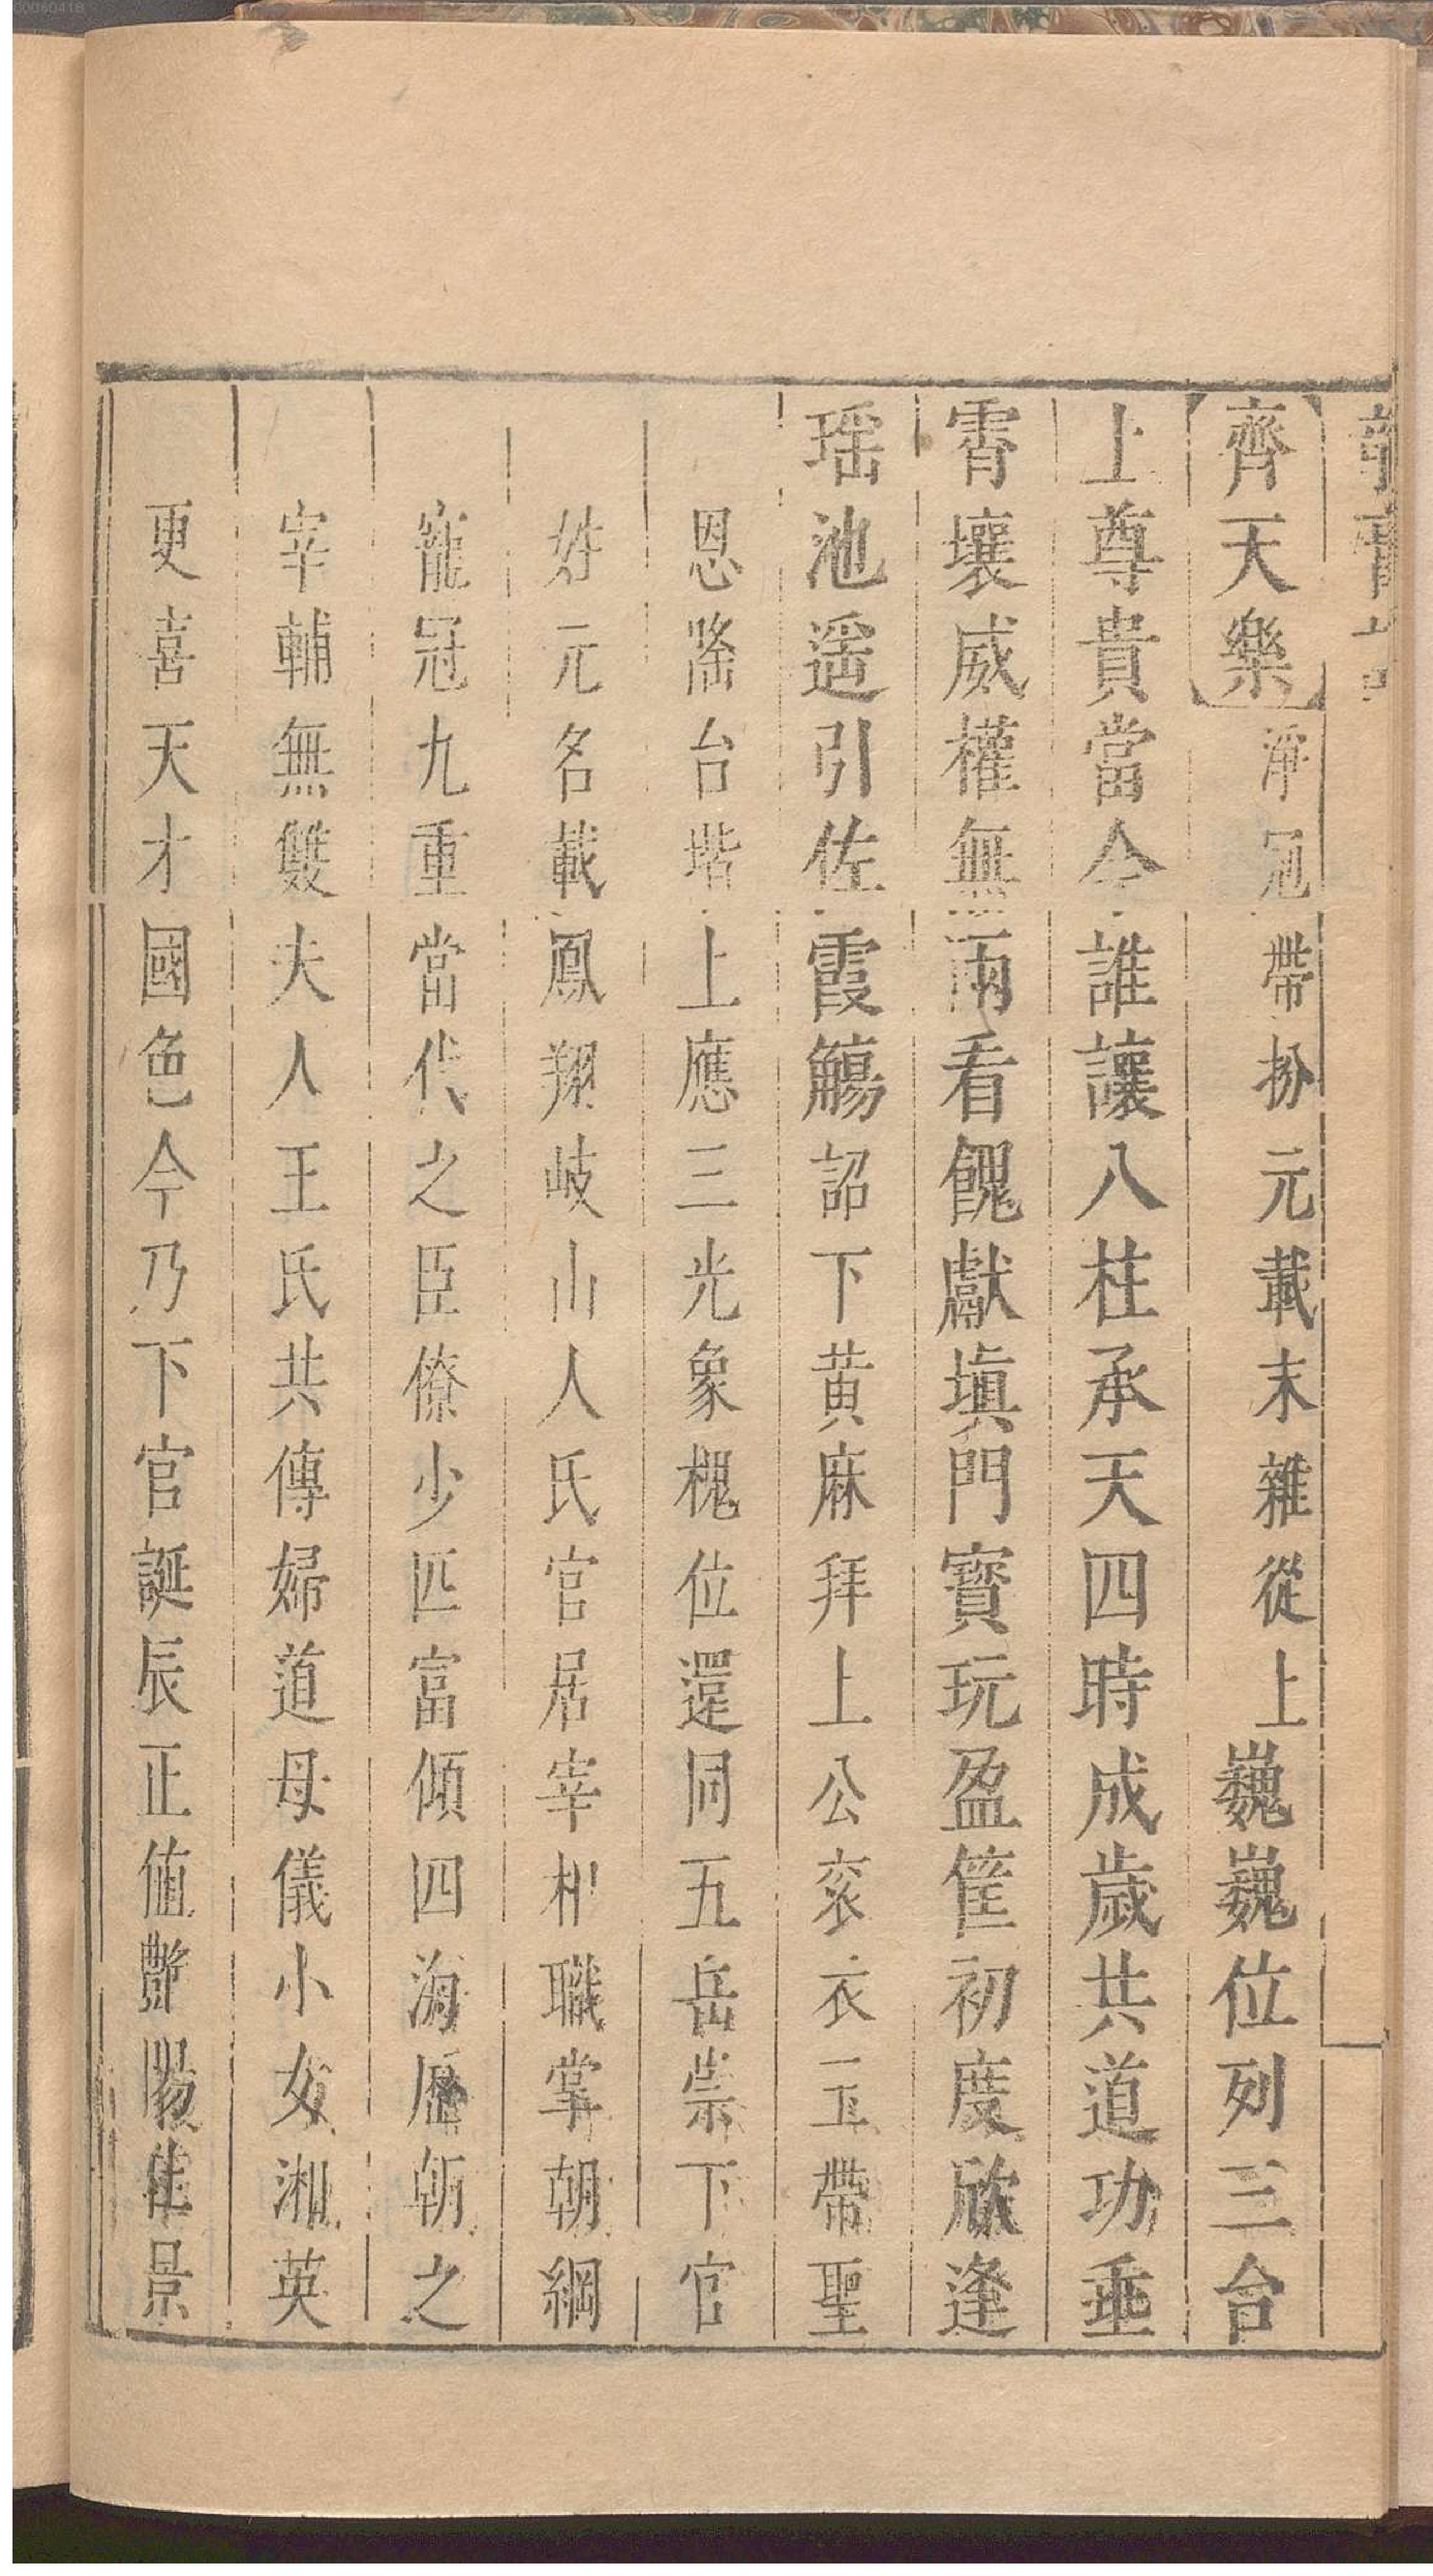 00060418
【齊天樂】淨冠帶扮元載末雜從上巍巍位列三台
上尊貴當今誰讓八柱承天四時成歲共道功垂
霄壤威權無兩看餽獻塡門寳玩盈筐初度欣逢
瑶池遥引佐霞觴詔下黄麻拜上公衮衣玉帶聖
恩隆台堦上應三光象槐位還同五岳崇下官
姓元名載鳳翔岐山人氏官居宰相職掌朝綱
寵冠九重當代之臣僚少匹富傾四海歷朝之
宰輔無雙夫人王氏共傳婦道母儀小女湘英
更喜天才國色今乃下官誕辰正值艷陽佳景